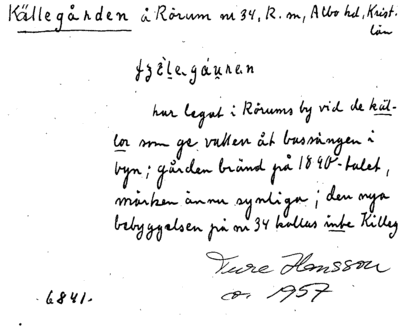 Källegården å Rörum nr 34, R. sn, Albo hd, Krist-
län
har legat i Rörums by vid de käl-
lor som ge vatten åt bassängen i
byn; gården bränd på 1890-talet,
märken ännu synliga; den nya
bebyggelsen på nr 34 kallas inte Killeg
Ture Hansson
1957
6841.